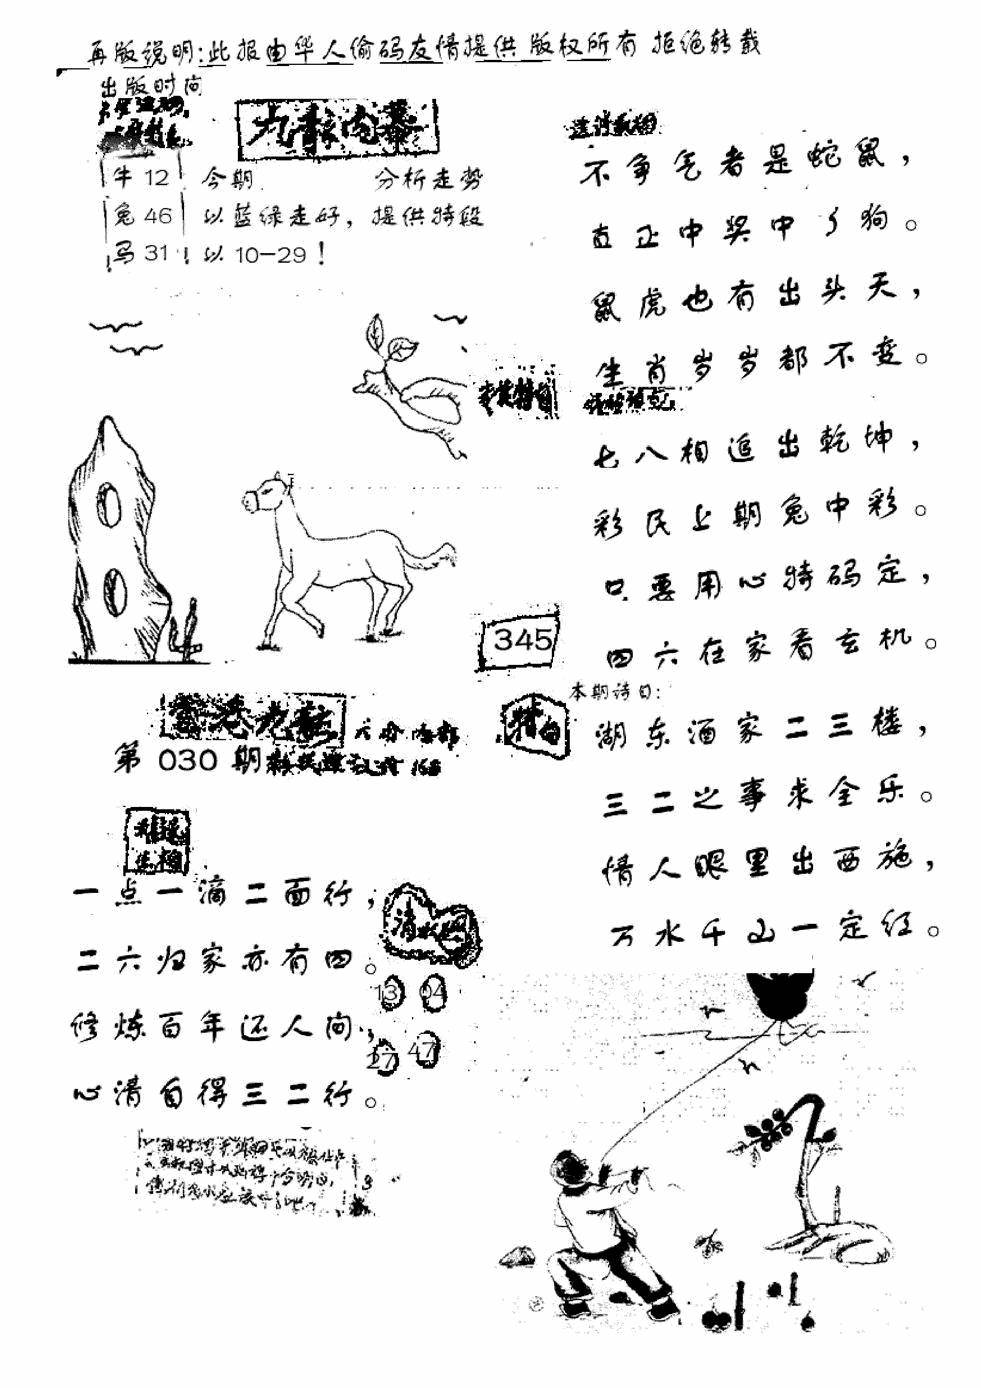 再版说明:此报由华人偷码友情提供 版权所有 拒绝转载
出版时间
九龍内幕
牛 12 今期 分析走势
兔 46 以蓝绿走好，提供特段
马 31 以 10-29！
不争气者是蛇鼠，
真正中奖中了狗。
鼠虎也有出头天，
生肖岁岁都不变。
七八相追出乾坤，
彩民上期兔中彩。
只要用心特码定，
四六在家看玄机。
345
香港九龍
第 030 期
本期诗曰:
特曰
湖东酒家二三楼，
三二之事求全乐。
情人眼里出西施，
万水千山一定红。
一点一滴二面行，
二六归家亦有四。
修炼百年还人间，
心清自得三二行。
13 04
27 47